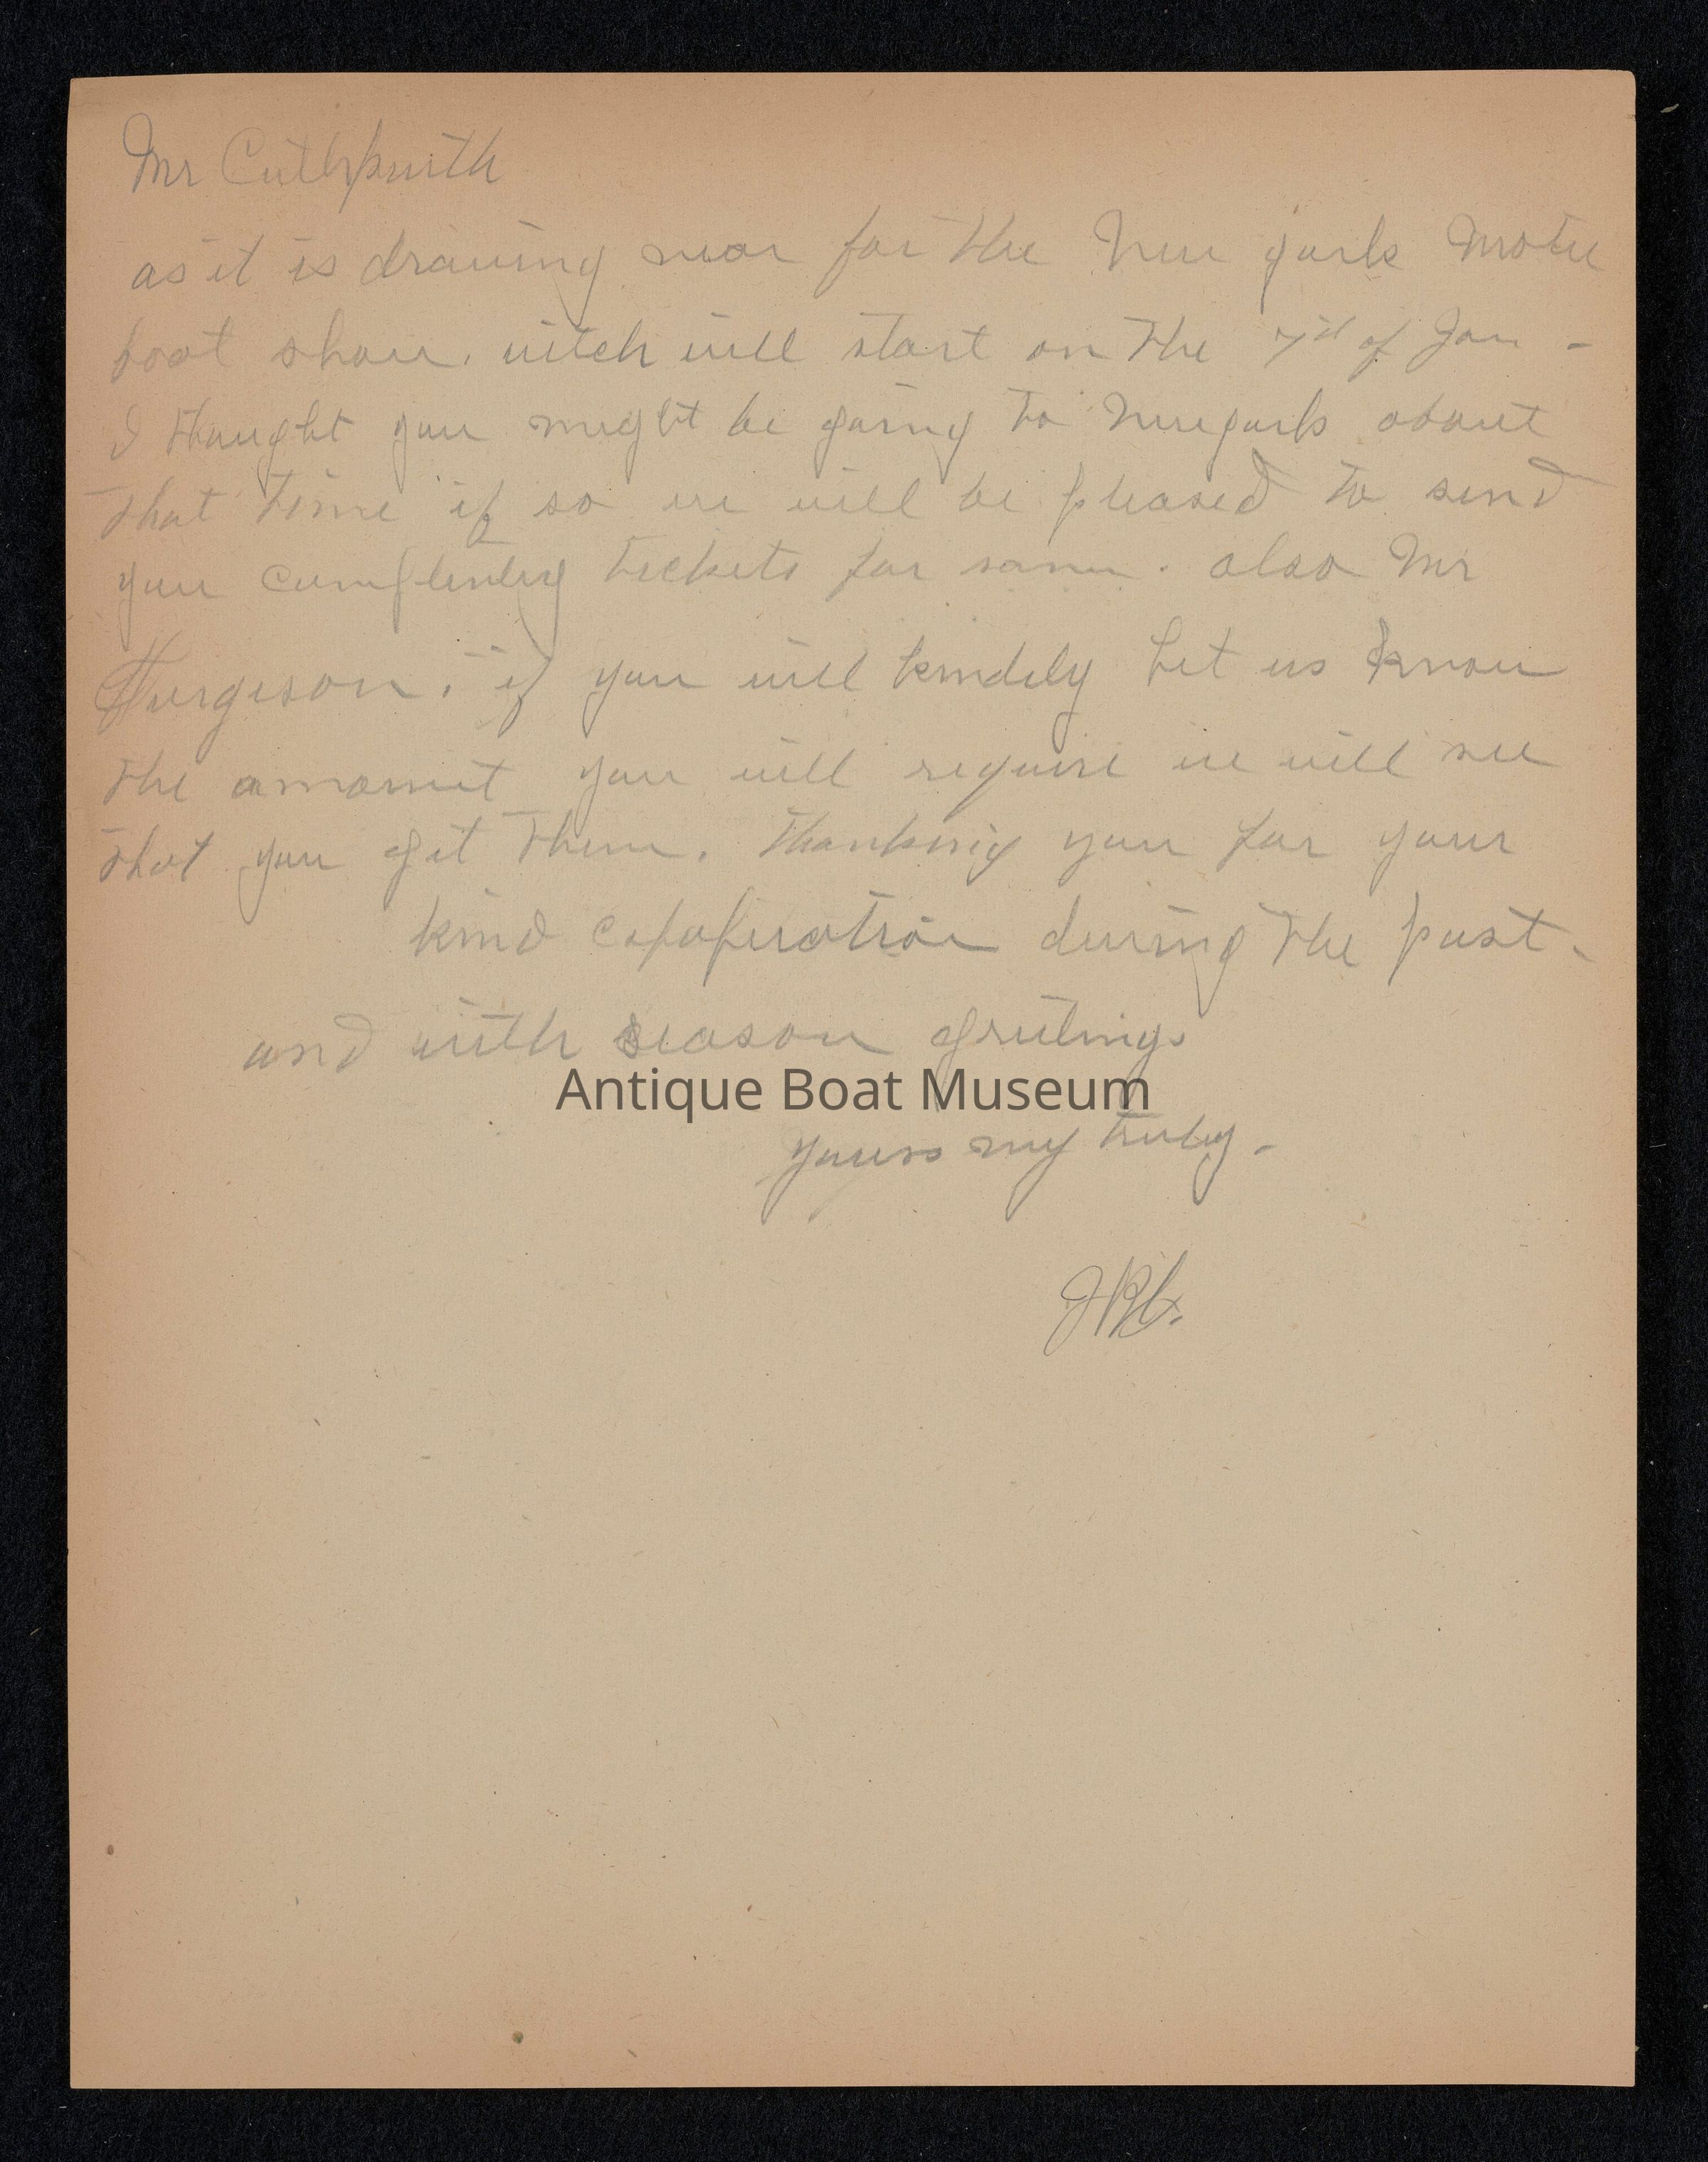 Mr
as it is drawing near for the New york Motor
boat show. witch will start on the 7th of Jan -
I thought you might be going to Newyork about
that time if so we will be pleased to send
you tickets for same. also Mr
Furgeson. if you will kindely let us know
the amount you will require we will see
that you get them. Thanking you for your
kind during the past -
and with season greetings
Antique Boat Museum
yours very truly -